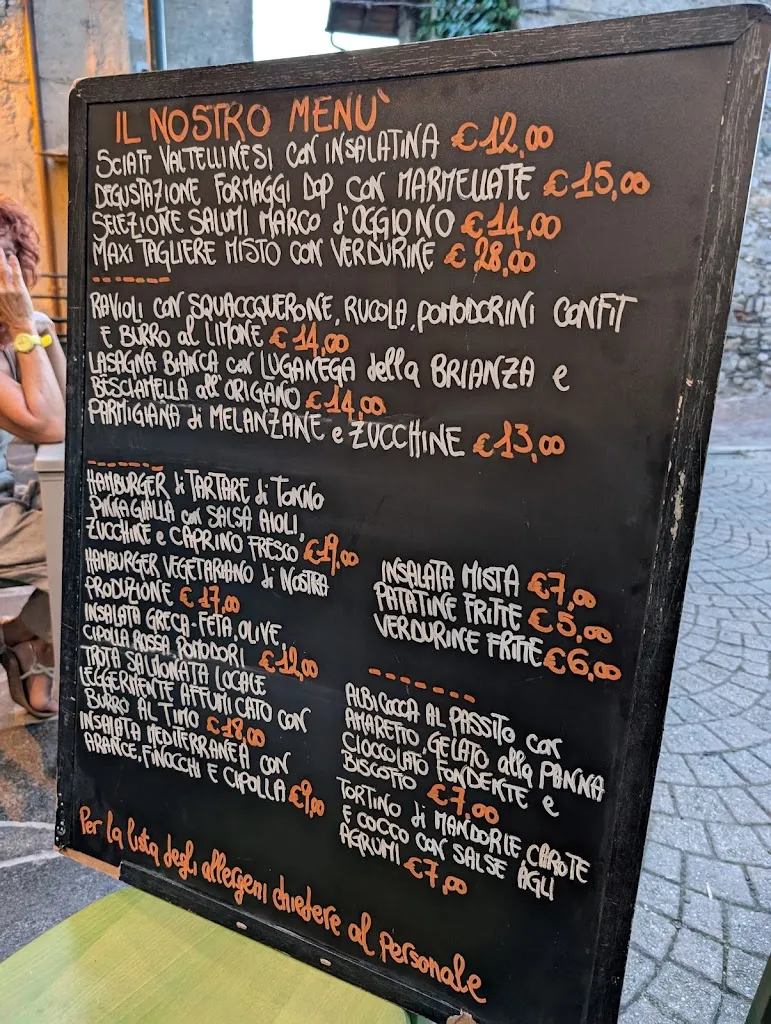 IL NOSTRO MENU'
SCIATT VALTELLINESI CON INSALATINA €12,00
DEGUSTAZIONE FORMAGGI DOP CON MARMELLATE €15,00
SELEZIONE SALUMI MARCO d'OGGIONO €14,00
MAXI TAGLIERE MISTO CON VERDURINE €28,00
RAVIOLI CON SQUACCQUERONE, RUCOLA, POMODORINI CONFIT
E BURRO al LIMONE €14,00
LASAGNA BIANCA con LUGANEGA della BRIANZA e
BESCIAMELLA all'ORIGANO €14,00
PARMIGIANA di MELANZANE e ZUCCHINE €13,00
HAMBURGER di TARTARE di TONNO
PINNA GIALLA con SALSA AIOLI,
ZUCCHINE e CAPRINO FRESCO €19,00
HAMBURGER VEGETARIANO di NOSTRA
PRODUZIONE €17,00
INSALATA GRECA-FETA, OLIVE,
CIPOLLA ROSSA, POMODORI €12,00
TROTA SALMONATA LOCALE
LEGGERMENTE AFFUMICATO CON
BURRO AL TIMO €18,00
INSALATA MEDITERRANEA CON
ARANCE, FINOCCHI E CIPOLLA €9,00
INSALATA MISTA €7,00
PATATINE FRITTE €5,00
VERDURINE FRITTE €6,00
ALBICOCCA AL PASSITO con
AMARETTO, GELATO alla PANNA
CIOCCOLATO FONDENTE e
BISCOTTO €7,00
TORTINO di MANDORLE, CAROTE
E COCCO CON SALSE AGLI
AGRUMI €7,00
Per la lista degli allergeni chiedere al personale